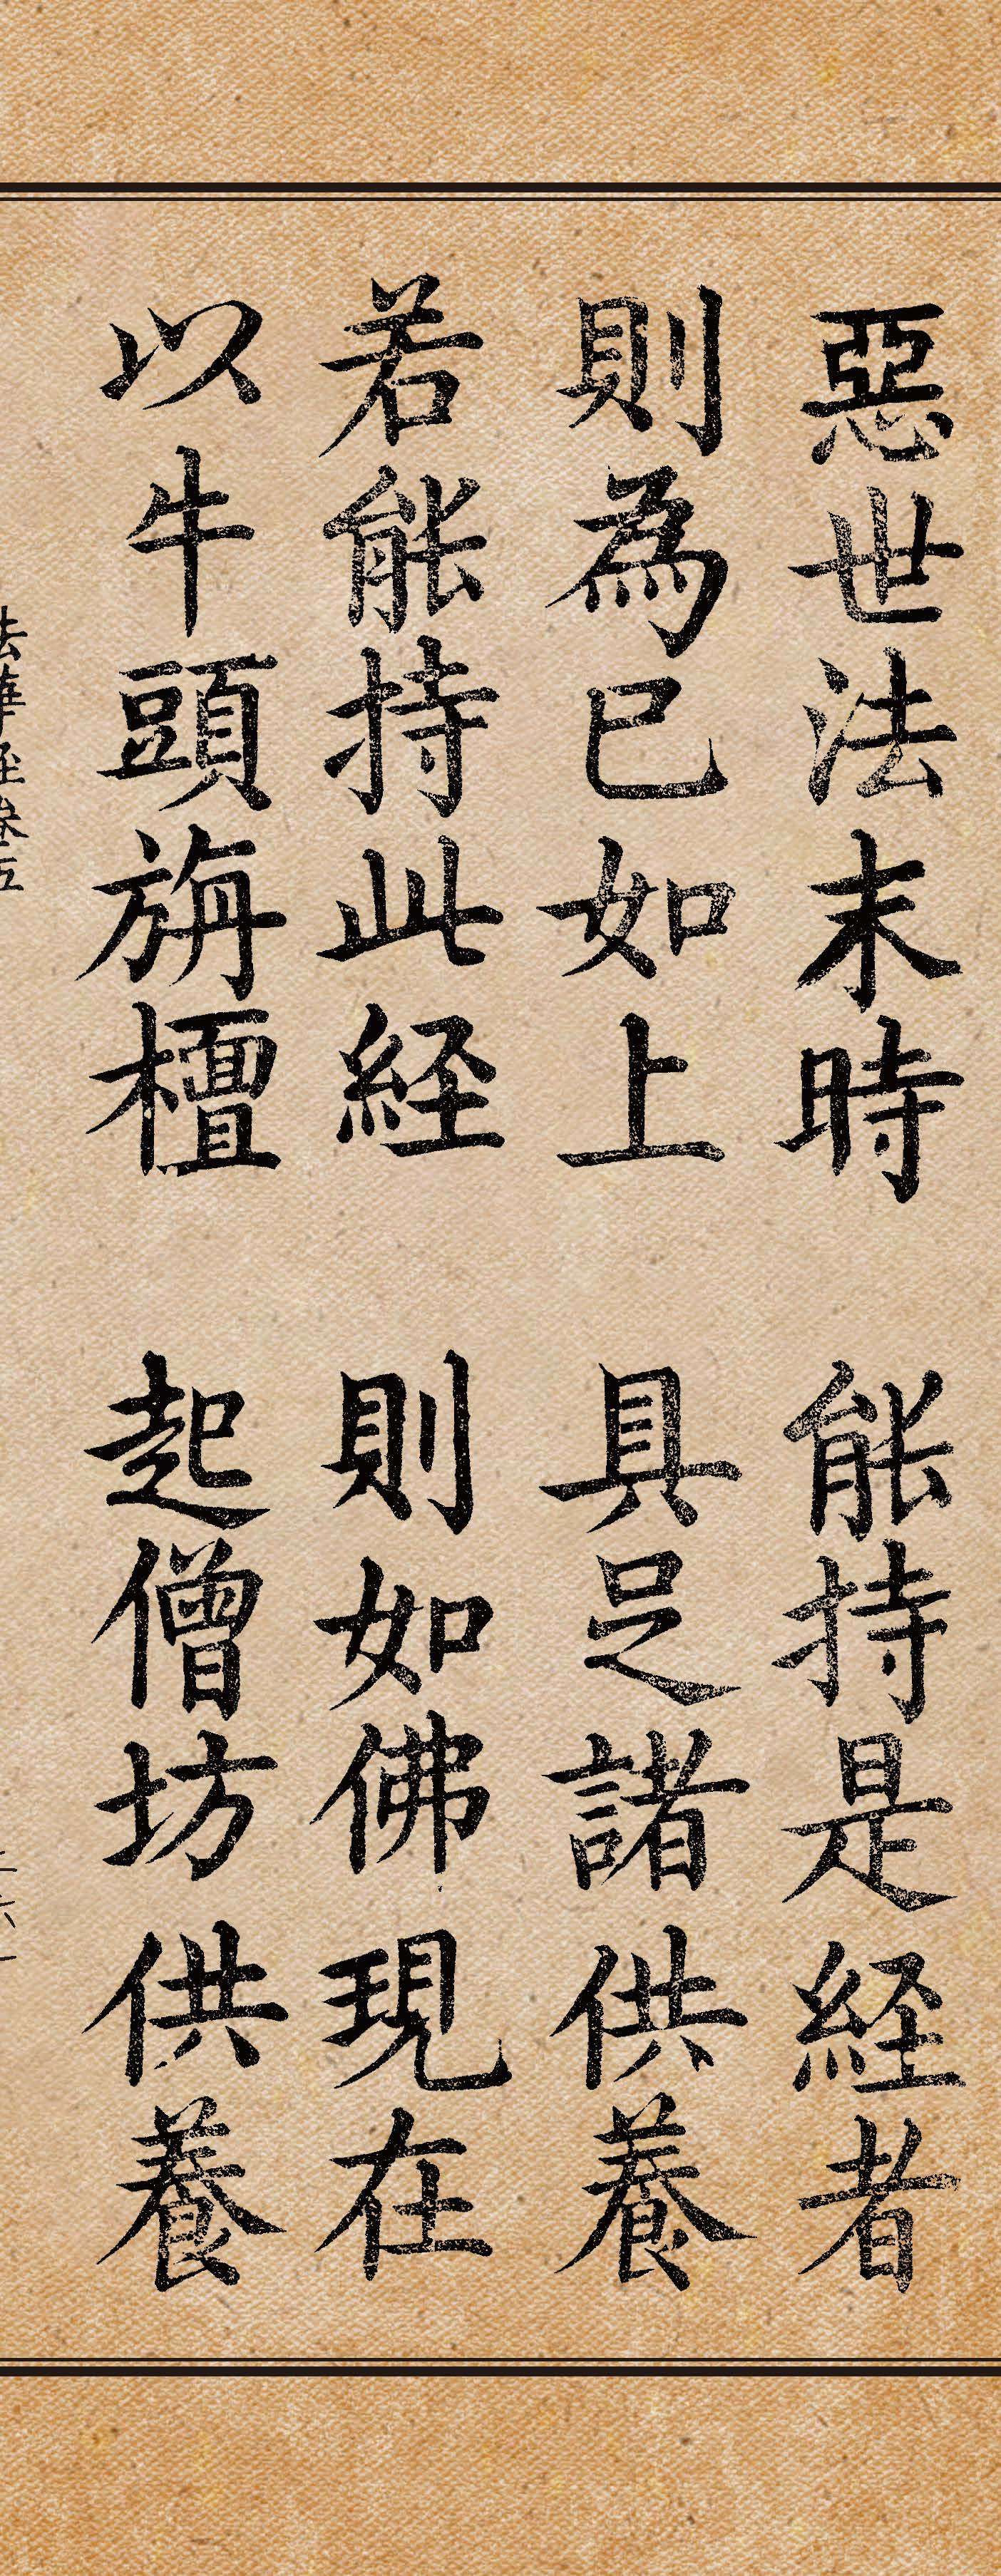 惡世法末時　能持是経者
則為已如上　具足諸供養
若能持此経　則如佛現在
以牛頭旃檀　起僧坊供養
法華経巻五